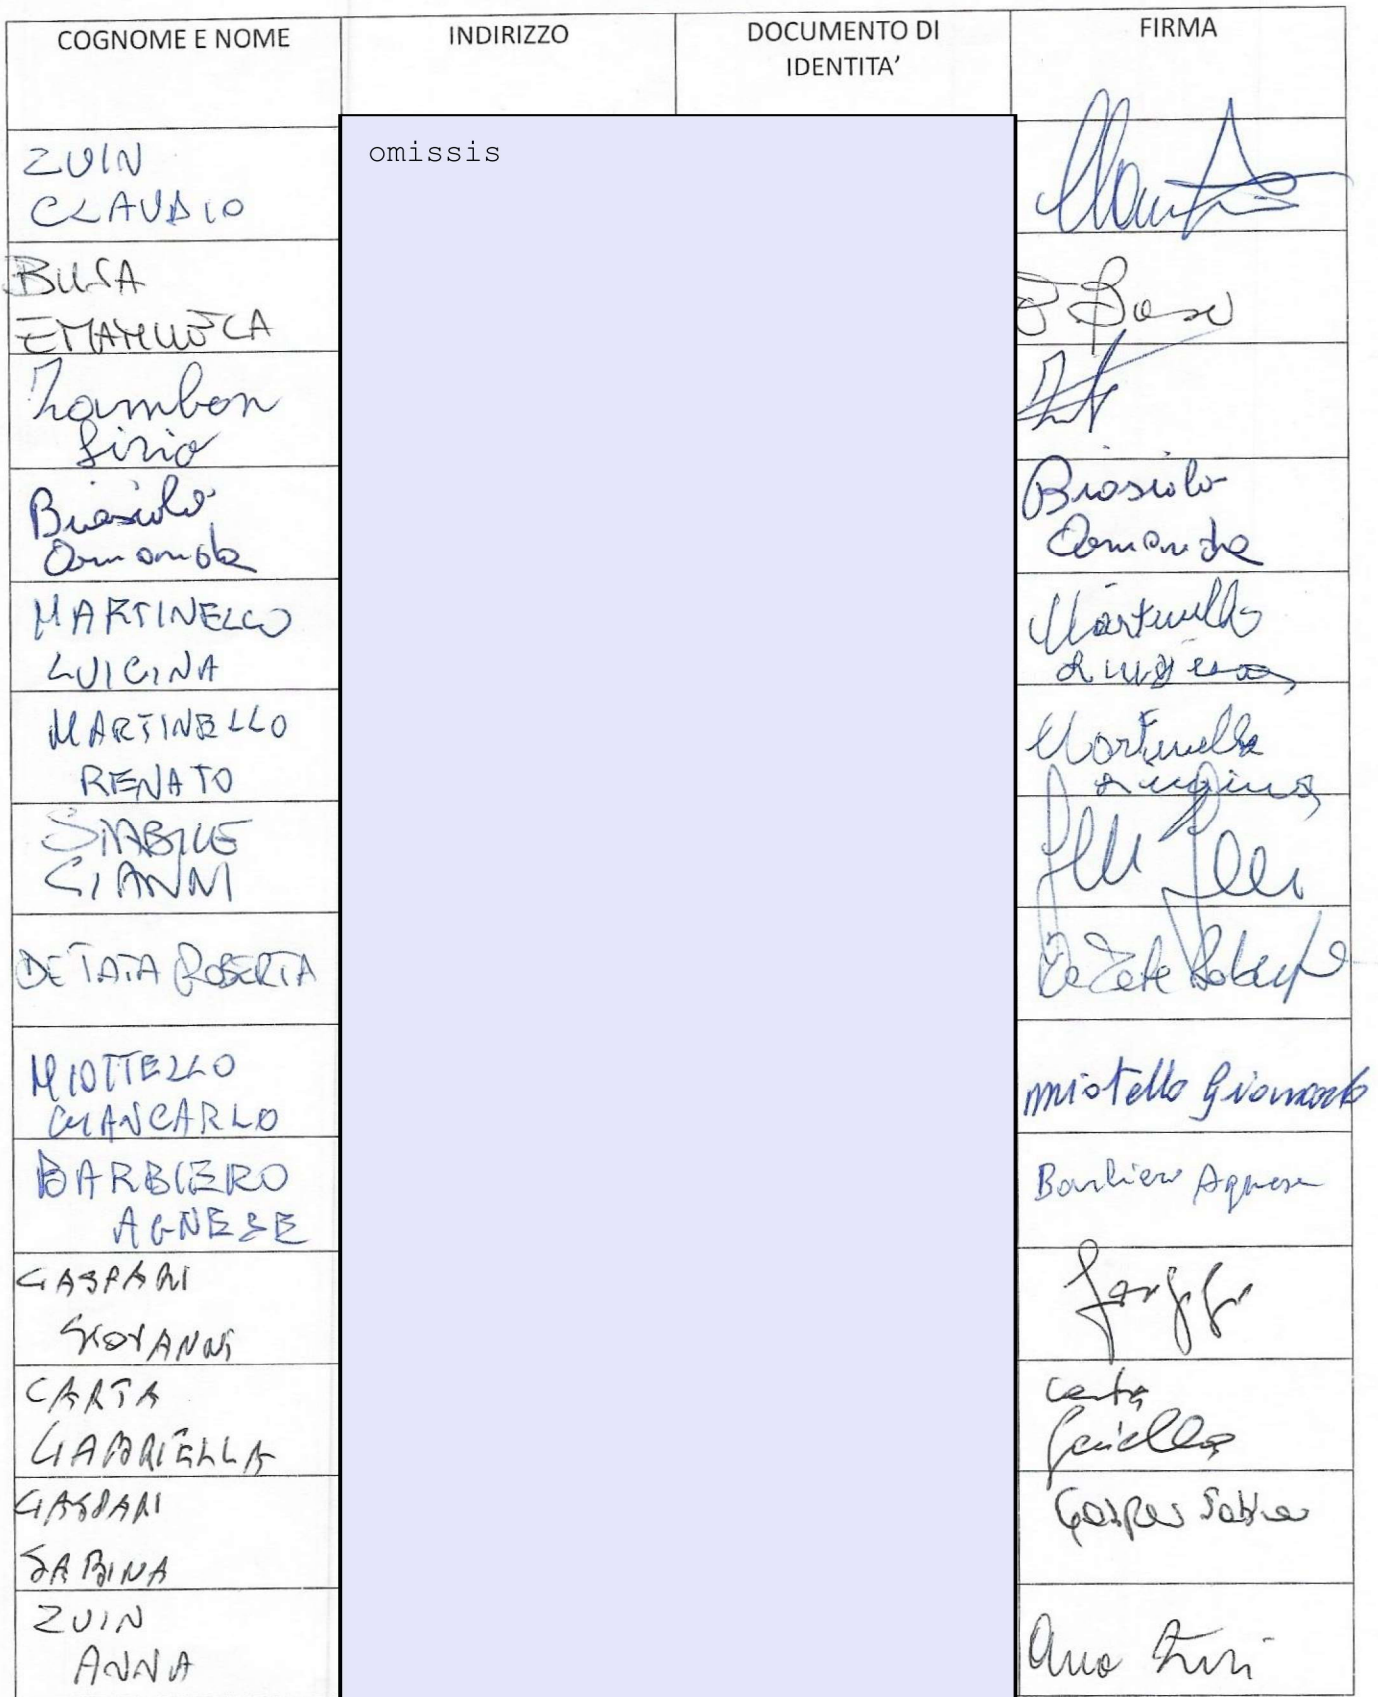 COGNOME E NOME
INDIRIZZO
DOCUMENTO DI
IDENTITA'
FIRMA
omissis
ZUIN
CLAUDIO
BUSA
EMANUELA
Zambon
Livio
Biasiolo
Amanda
Biasiolo
Amanda
MARTINELLO
LUIGINA
Martinello
Luigina
MARTINELLO
RENATO
Martinello
Luigina
STABILE
GIANNI
DE TATA ROBERTA
De Tata Roberta
MIOTTELLO
GIANCARLO
miotello Giancarlo
BARBIERO
AGNESE
Barbiero Agnese
GASPARI
GIOVANNI
CARTA
GABRIELLA
Carta
GASPARI
SABINA
Gaspari Sabina
ZUIN
ANNA